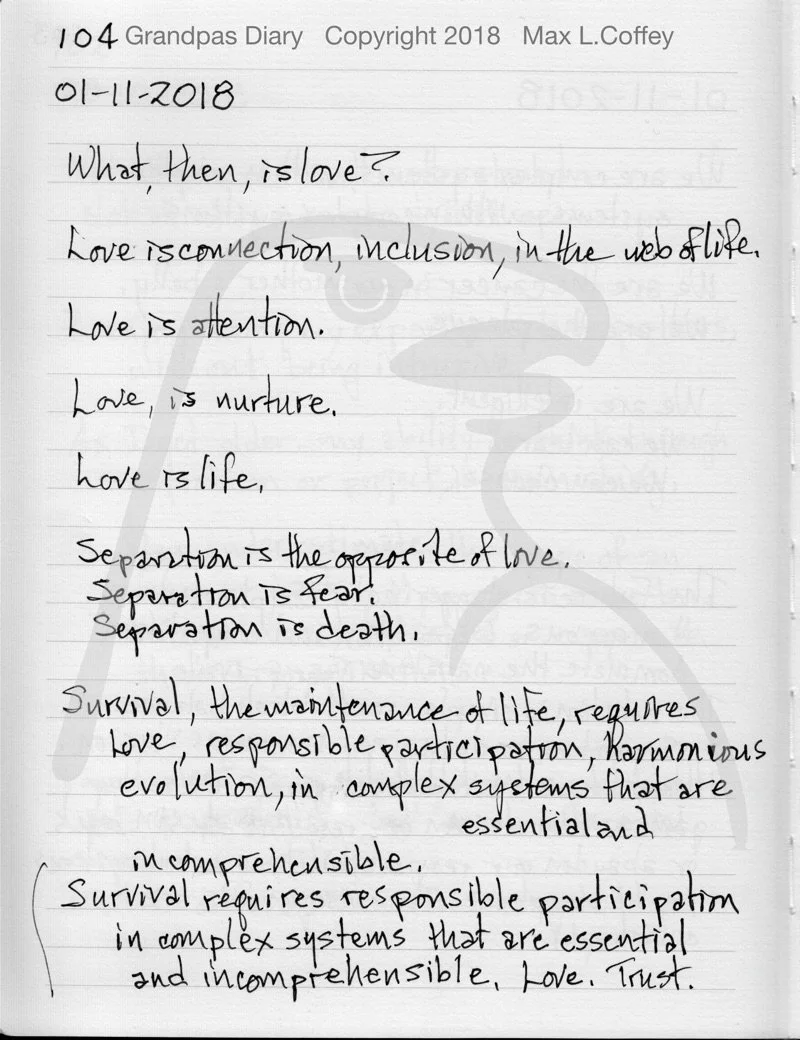 104 Grandpas Diary Copyright 2018 Max L.Coffey
01-11-2018
What, then, is love?
Love is connection, inclusion, in the web of life.
Love is attention.
Love, is nurture.
Love is life.
Separation is the opposite of love.
Separation is fear.
Separation is death.
Survival, the maintenance of life, requires
Love, responsible participation, harmonious
evolution, in complex systems that are
essential and
incomprehensible.
Survival requires responsible participation
in complex systems that are essential
and incomprehensible. Love. Trust.